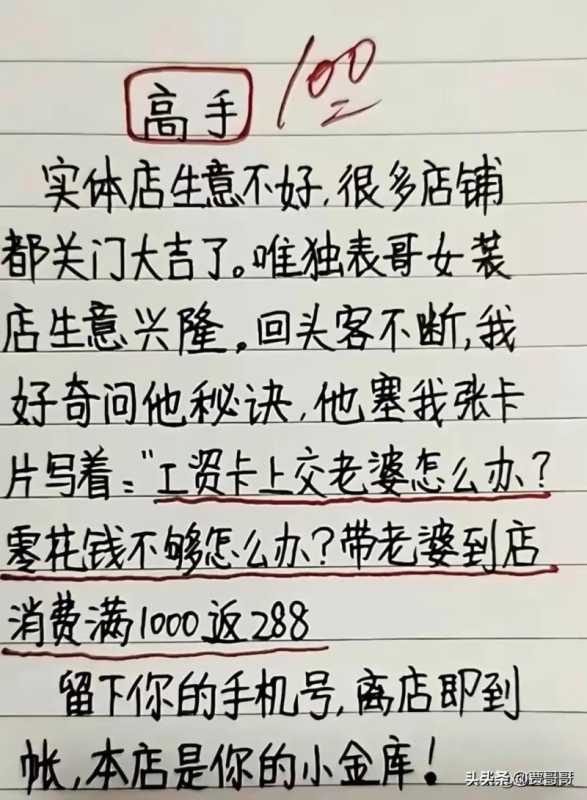 高手
100
实体店生意不好,很多店铺
都关门大吉了。唯独表哥女装
店生意兴隆。回头客不断,我
好奇问他秘诀,他塞我张卡
片写着:"工资卡上交老婆怎么办?
零花钱不够怎么办?带老婆到店
消费满1000返288
留下你的手机号,离店即到
帐,本店是你的小金库!
头条@贾哥哥